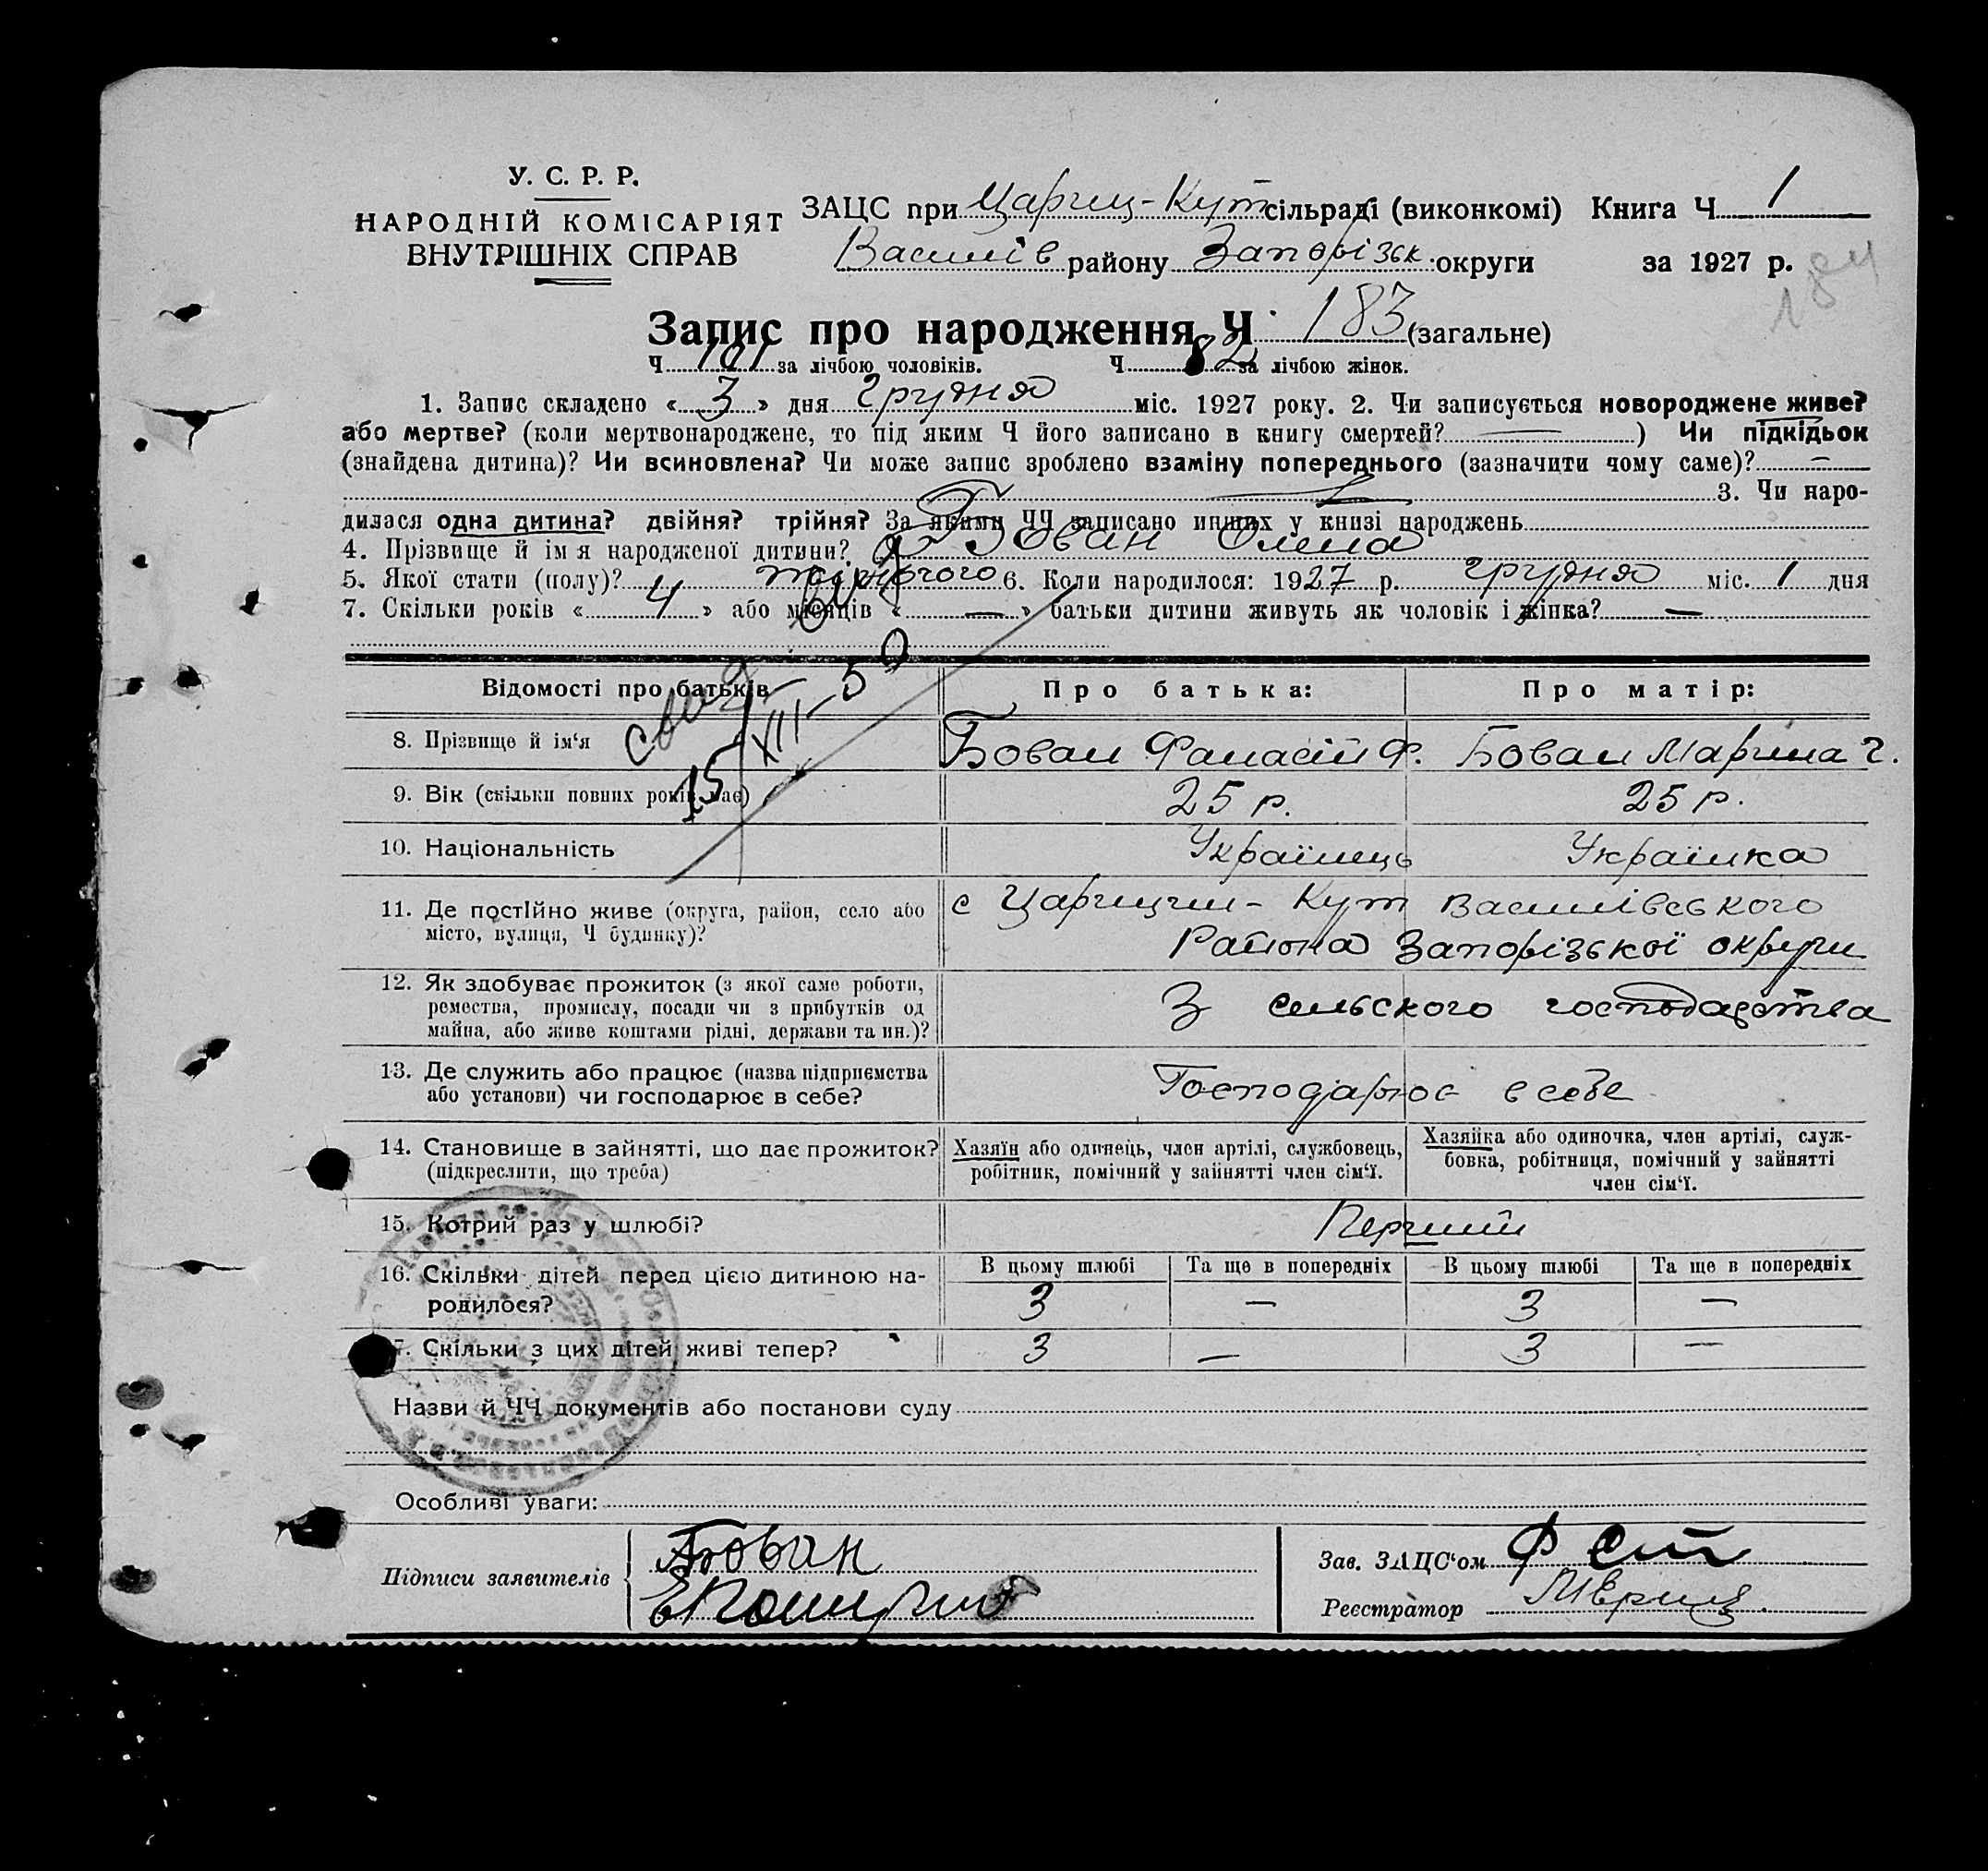 У. С. Р. Р.
НАРОДНІЙ КОМІСАРІЯТ
ВНУТРІШНІХ СПРАВ
ЗАЦС при Цариц-Кут сільраді (виконкомі) Книга Ч 1
Василів району Запорізьк. округи за 1927 р.
184
Запис про народження Ч. 183 (загальне)
Ч 101 за лічбою чоловіків. Ч 82 за лічбою жінок.
1. Запис складено « 3 » дня грудня міс. 1927 року. 2. Чи записується новороджене живе?
або мертве? (коли мертвонароджене, то під яким Ч його записано в книгу смертей? — ) Чи підкідьок
(знайдена дитина)? Чи всиновлена? Чи може запис зроблено взаміну попереднього (зазначити чому саме)? —
3. Чи наро-
дилася одна дитина? двійня? трійня? За якими ЧЧ записано инших у книзі народжень
4. Прізвище й ім я народженої дитини? Бован Олена
5. Якої стати (полу)? жіночого 6. Коли народилося: 1927 р. грудня міс. 1 дня
7. Скільки років « 4 » або місяців « — » батьки дитини живуть як чоловік і жінка? —
свид
15/XII-50
Відомості про батьків Про батька: Про матір:
8. Прізвище й ім'я Бован Фанасій Ф. Бован Марина Г.
9. Вік (скільки повних років має) 25 р. 25 р.
10. Національність Українець Українка
11. Де постійно живе (округа, район, село або
місто, вулиця, Ч будинку)?
с Царицин-Кут Василівського
Района Запорізької округи
12. Як здобуває прожиток (з якої саме роботи,
ремества, промислу, посади чи з прибутків од
майна, або живе коштами рідні, держави та ин.)?
З сельского господарства
13. Де служить або працює (назва підприємства
або установи) чи господарює в себе?
Господарює в себе
14. Становище в зайнятті, що дає прожиток?
(підкреслити, що треба)
Хазяїн або одинець, член артілі, службовець,
робітник, помічний у зайнятті член сім'ї.
Хазяйка або одиночка, член артілі, служ-
бовка, робітниця, помічний у зайнятті
член сім'ї.
15. Котрий раз у шлюбі? Перший
16. Скільки дітей перед цією дитиною на-
родилося?
В цьому шлюбі Та ще в попередніх В цьому шлюбі Та ще в попередніх
3 — 3 —
7. Скільки з цих дітей живі тепер? 3 — 3 —
Назви й ЧЧ документів або постанови суду
Особливі уваги:
Підписи заявителів Бован
Зав. ЗАЦС'ом
Реєстратор